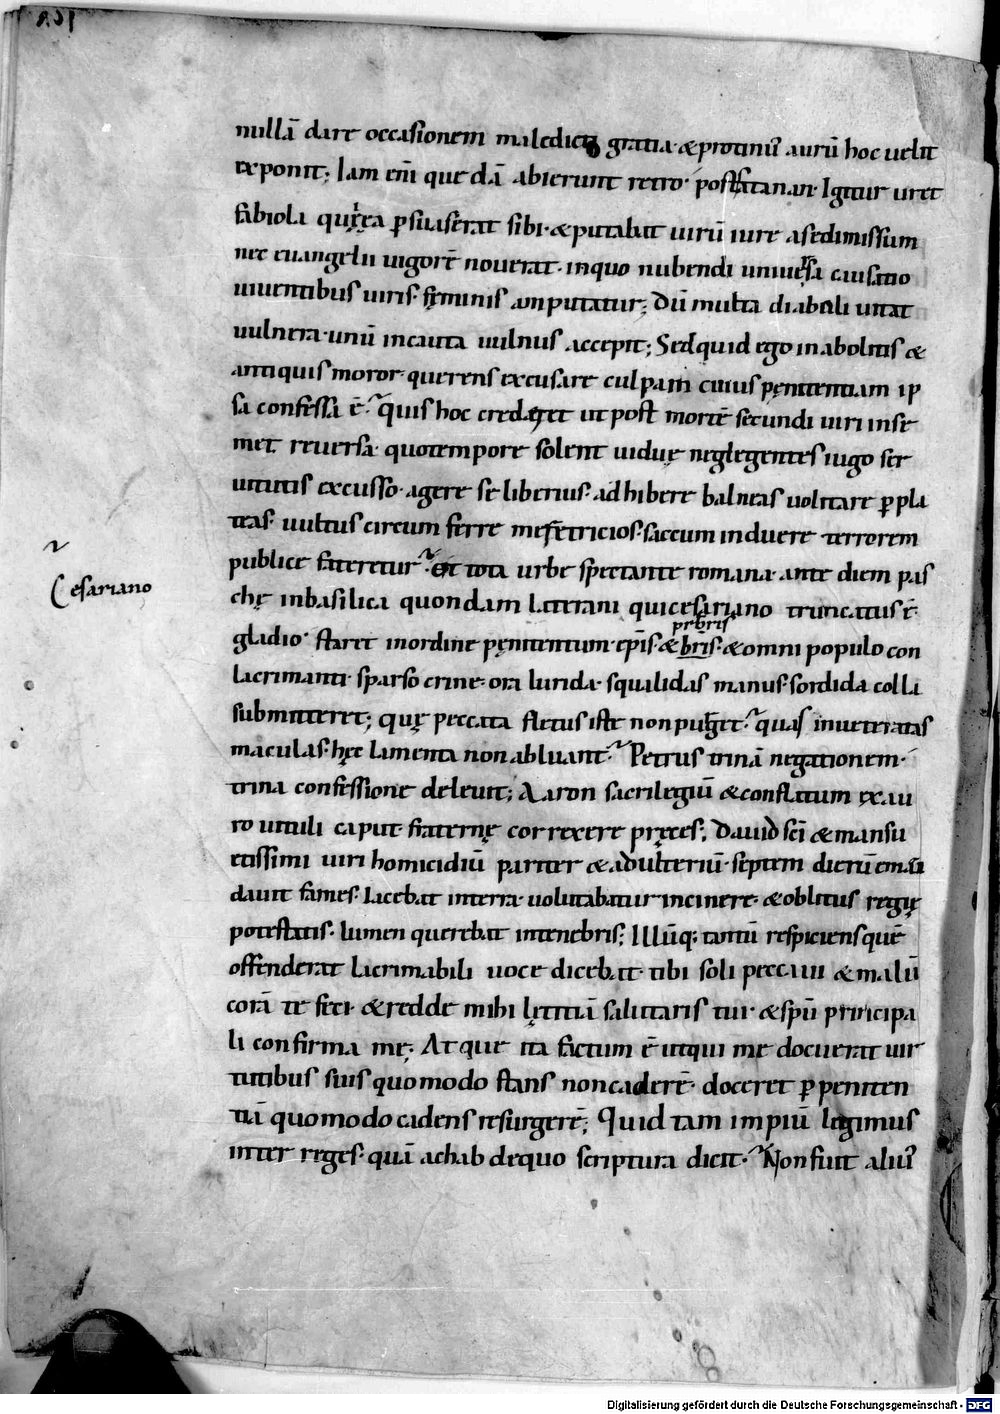 nullā dare occasionem maledicti gratia· & protinus aurū hoc uelit
exponit; Iam eni͞ que dā abierunt retro· post satanan· Igitur uret
fabiola quęrea ꝑsuaserat sibi· & putabat uirū iure a se dimissum
nec euangelii uigorē nouerat· in quo nubendi uniuersa causatio
uiuentibus uiris· fęminis amputatur; Dū multa diaboli uitat
uulnera· unū incauta uulnus accepit; Sed quid ego in abolitis &
antiquis moror· querens excusare culpam cuius pęnitentiam ip
sa confessa ē· quis hoc crederet ut post mortē secundi uiri in se
met reuersa· quo tempore solent uiduę neglegentes iugo ser
uitutis excusso· agere se liberius· adhibere balneas uolitare ꝑ pla
teas· uultus circum ferre meretricios· saccum induere terrorem
publice fateretur· Et tota urbe spectante romana· ante diem pas
chę in basilica quondam laterani qui cesariano truncatus ē
Cesariano
prebris
gladio· staret in ordine pęnitentum· ep̄is· & br̄is· & omni populo con
lacrimanti· sparso crine· ora lurida· squalidas manus· sordida colla
submitteret; quę peccata fletus iste non purget· quas inueteratas
maculas· hęc lamenta non abluant· Petrus trinā negationem·
trina confessione deleuit; Aaron sacrilegiū & conflatum ex au
ro uituli caput· fraternę correxere pręces; Dauid sc̄i & mansu
etissimi uiri homicidiū pariter & adulteriū· septem dierū emen
dauit fames· Iacebat in terra· uolutabatur in cinere· & oblitus regię
potestatis· lumen querebat in tenebris; Illūq; tantū respiciens quē
offenderat lacrimabili uoce dicebat· tibi soli peccaui & malū
corā te feci· & redde mihi lętitiā salutaris tui· & sp̄u principa
li confirma me; Atque ita factum ē ut qui me docuerat uir
tutibus suis quomodo stans non caderē· doceret ꝑ peniten
tiā quomodo cadens resurgerē; Quid tam impiū legimus
inter reges· quā achab de quo scriptura dicit· Non fuit alius
Digitalisierung gefördert durch die Deutsche Forschungsgemeinschaft - DFG